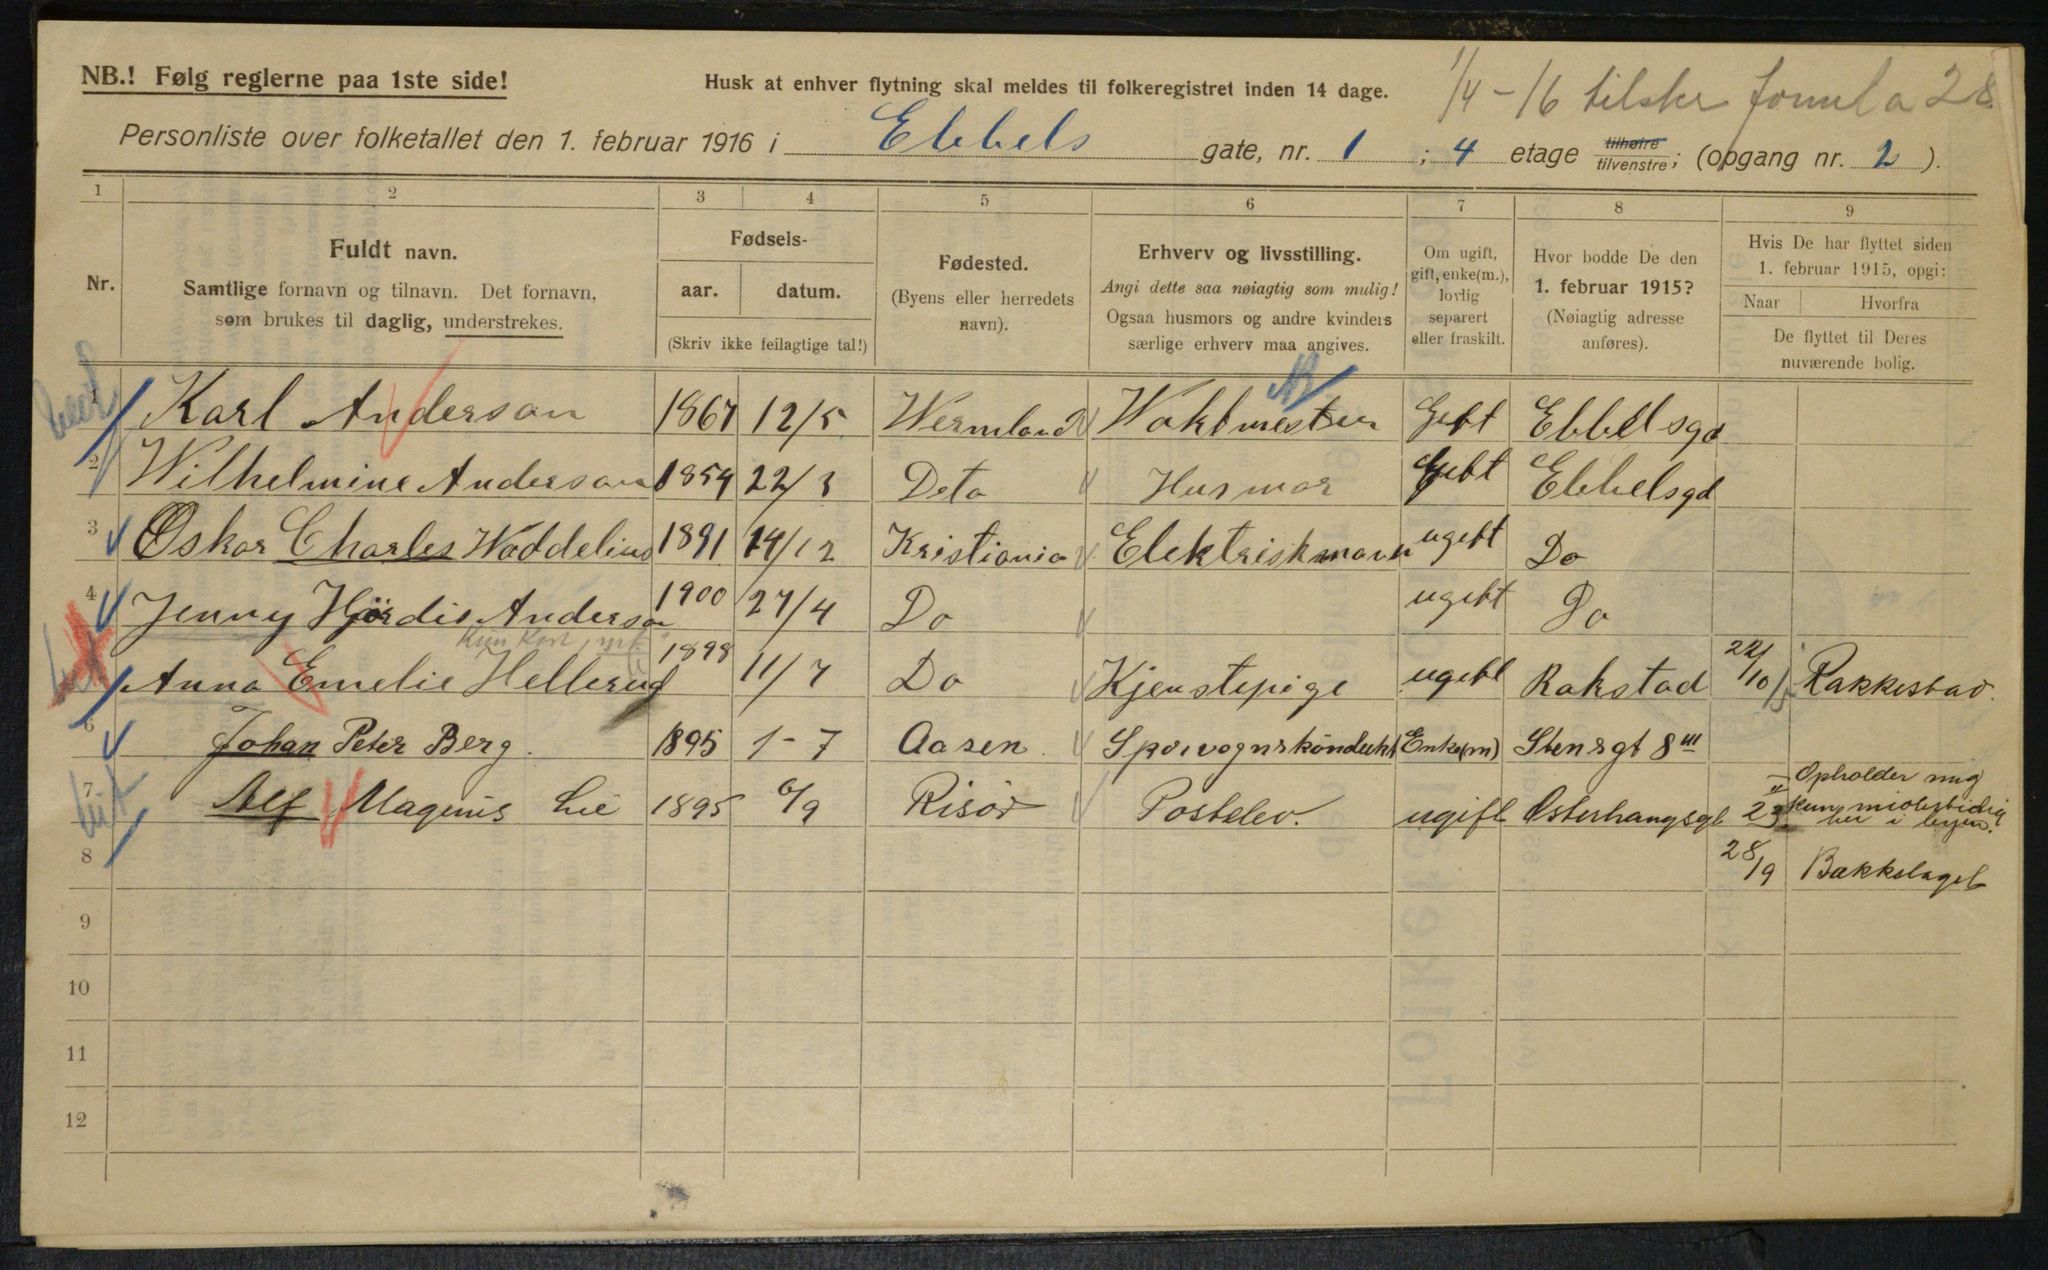 NB.! Følg reglerne paa 1ste side!
Husk at enhver flytning skal meldes til folkeregistret inden 14 dage.
1/4-16 tilska 28
Personliste over folketallet den 1. februar 1916 i Ebbels gate, nr. 1 ; 4 etage tilhøire tilvenstre ; (opgang nr. 2 ).
1 2 3 4 5 6 7 8 9
Nr.
Fuldt navn.
Samtlige fornavn og tilnavn. Det fornavn,
som brukes til daglig, understrekes.
Fødsels-
aar. datum.
(Skriv ikke feilagtige tal!)
Fødested.
(Byens eller herredets
navn).
Erhverv og livsstilling.
Angi dette saa nøiagtig som mulig!
Ogsaa husmors og andre kvinders
særlige erhverv maa angives.
Om ugift,
gift, enke(m.),
lovlig
separert
eller fraskilt.
Hvor bodde De den
1. februar 1915?
(Nøiagtig adresse
anføres).
Hvis De har flyttet siden
1. februar 1915, opgi:
Naar Hvorfra
De flyttet til Deres
nuværende bolig.
1 Karl Anderson 1867 12/5 Wermland Waktmester Gift Ebbelsgd
2 Wilhelmine Anderson 1854 22/3 Deto Husmor Gift Ebbelsgd
3 Oskar Charles Waddelius 1891 14/12 Kristiania Elektriskmann ugebt Do
4 Jenny Hjørdis Anderson 1900 27/4 Do ugebt Do
Anna Emelie Hellerud 1898 11/7 Do Kjenstepige ugebt Rakstad 22/10 Rakkestad.
6 Johan Peter Berg. 1895 1-7 Aasen. Sporvognskondukt Enke(m) Stensgt 8 III
7 Alf Magnus Lie 1895 6/9 Risør Postelev. ugift Østerhaugsgt 23 Opholder mig
kun midlertidig
her i byen.
8 28/9 Bakkelaget
9
10
11
12